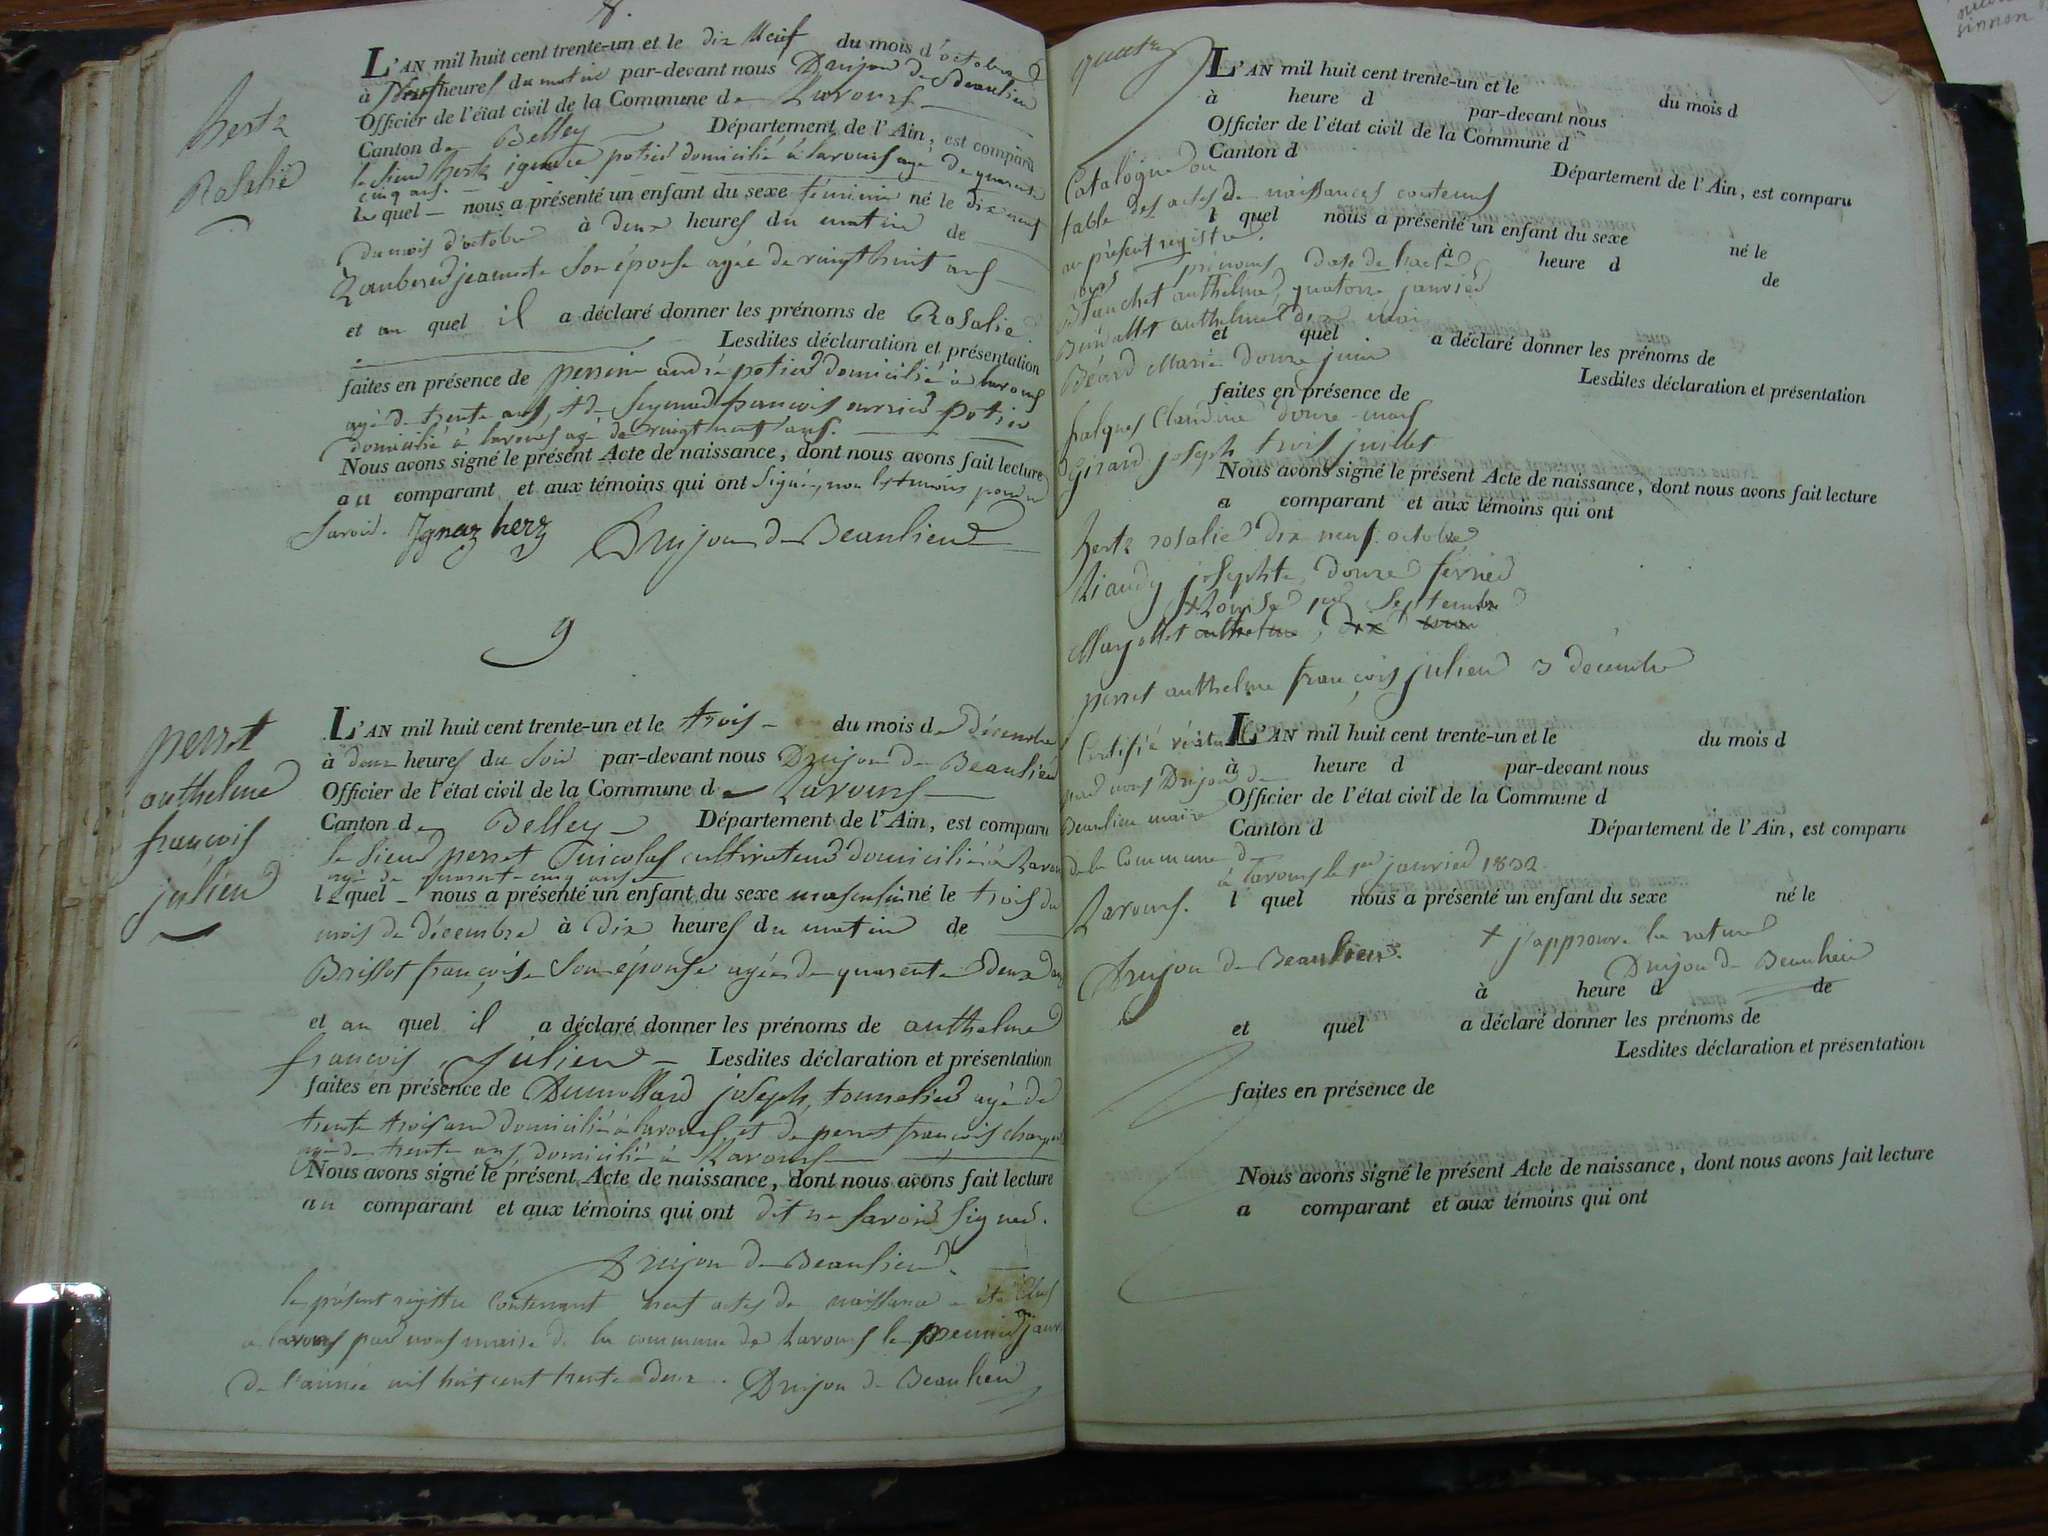 8.
hertz
Rosalie
L'AN mil huit cent trente-un et le dix Neuf du mois d'octobre
à Neuf heures du matin par-devant nous Drujon de Beaulieu
Officier de l'état civil de la Commune de Lavours
Canton de Belley Département de l'Ain, est comparu
le sieur hertz ignace potier domicilié à lavours agé de quarante
cinq ans.
lequel nous a présenté un enfant du sexe féminin né le dix neuf
du mois d'octobre à deux heures du matin de
jeannette son épouse agée de vingt huit ans
et au quel il a déclaré donner les prénoms de Rosalie
Lesdites déclaration et présentation
faites en présence de perrin andré potier domicilié à lavours
agé de trente ans, et de françois ouvrier potier
domicilié à lavours agé de vingt neuf ans.
Nous avons signé le présent Acte de naissance, dont nous avons fait lecture
au comparant et aux témoins qui ont signé, non les témoins pour ne
savoir. Ignaz herz Drujon de Beaulieu
9
perret
anthelme
françois
julien
L'AN mil huit cent trente-un et le trois du mois de décembre
à deux heures du soir par-devant nous Drujon de Beaulieu
Officier de l'état civil de la Commune de Lavours
Canton de Belley Département de l'Ain, est comparu
le sieur perret cultivateur domicilié à Lavours
agé de quarante-cinq ans
lequel nous a présenté un enfant du sexe masculin né le trois du
mois de décembre à dix heures du matin de
Brissot françoise son épouse agée de quarante deux ans
et au quel il a déclaré donner les prénoms de anthelme
françois, Julien Lesdites déclaration et présentation
faites en présence de Dumollard joseph, tonnelier agé de
trente trois ans domicilié à lavours, et de perret françois
agé de trente ans, domicilié à Lavours
Nous avons signé le présent Acte de naissance, dont nous avons fait lecture
au comparant et aux témoins qui ont dit ne savoir signer.
Drujon de Beaulieu
le présent registre contenant neuf actes de naissance a été clos
à lavours par nous maire de la commune de Lavours le premier janvier
de l'année mil huit cent trente deux. Drujon de Beaulieu
quatre
L'AN mil huit cent trente-un et le du mois d
à heure d par-devant nous
Officier de l'état civil de la Commune d
Canton d
Département de l'Ain, est comparu
Catalogue ou
table des actes de naissances contenus
l quel nous a présenté un enfant du sexe né le
au présent registre.
à heure d de
prénoms, date de l'acte
Blanchet anthelme, quatorze janvier
anthelme dix mai
et quel a déclaré donner les prénoms de
Béard Marie douze juin
Lesdites déclaration et présentation
faites en présence de
falques Claudine douze mars
Girard joseph trois juillet
Nous avons signé le présent Acte de naissance, dont nous avons fait lecture
a comparant et aux témoins qui ont
hertz rosalie dix neuf octobre
josephte, douze février
+ Louise 1er septembre
Marjollet anthelme, dix
perret anthelme françois julien 3 décembre
L'AN mil huit cent trente-un et le du mois d
Certifié véritable
à heure d par-devant nous
par nous Drujon de
Officier de l'état civil de la Commune d
Beaulieu maire
Canton d Département de l'Ain, est comparu
de la Commune de
à lavours le 1er janvier 1832
l quel nous a présenté un enfant du sexe né le
Lavours.
+ j'approuve la rature
Drujon de Beaulieu.
Drujon de Beaulieu
à heure d de
et quel a déclaré donner les prénoms de
Lesdites déclaration et présentation
faites en présence de
Nous avons signé le présent Acte de naissance, dont nous avons fait lecture
a comparant et aux témoins qui ont